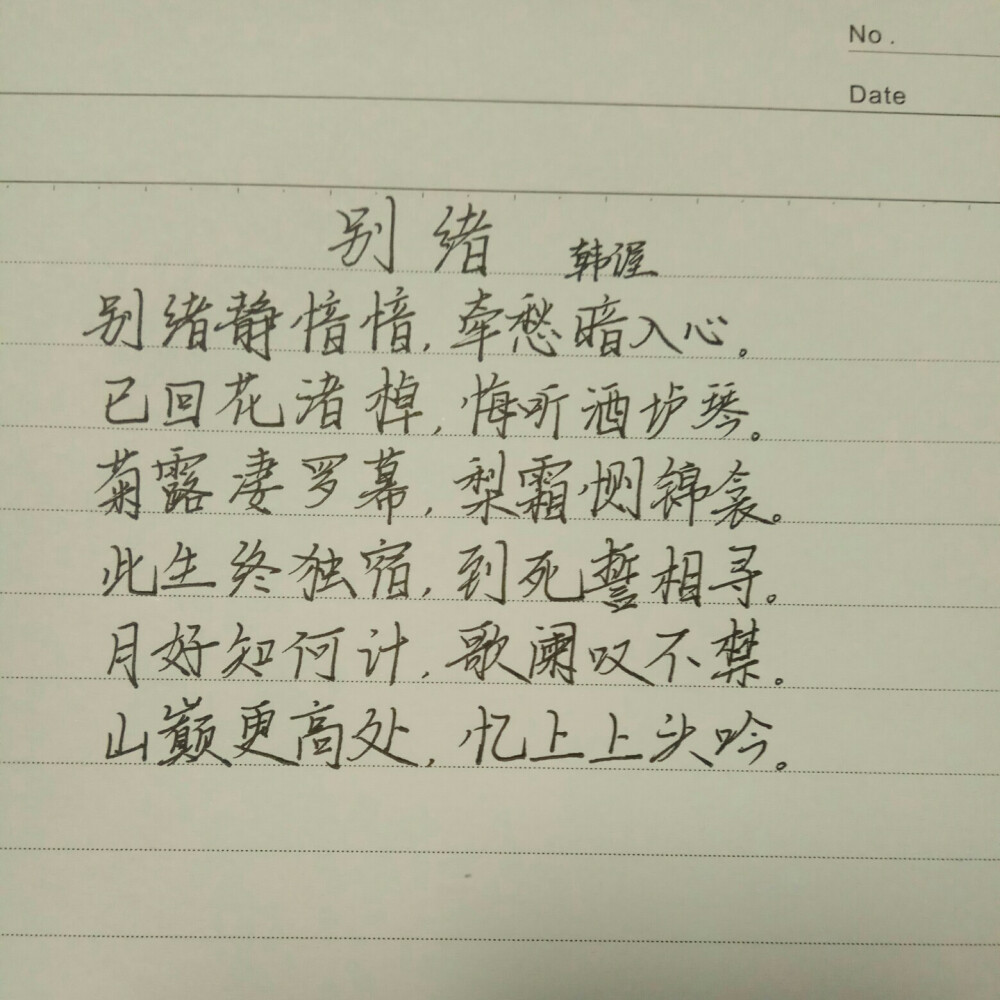 No.
Date
别绪 韩偓
别绪静愔愔,牵愁暗入心。
已回花渚棹,悔听酒垆琴。
菊露凄罗幕,梨霜恻锦衾。
此生终独宿,到死誓相寻。
月好知何计,歌阑叹不禁。
山巅更高处,忆上上头吟。